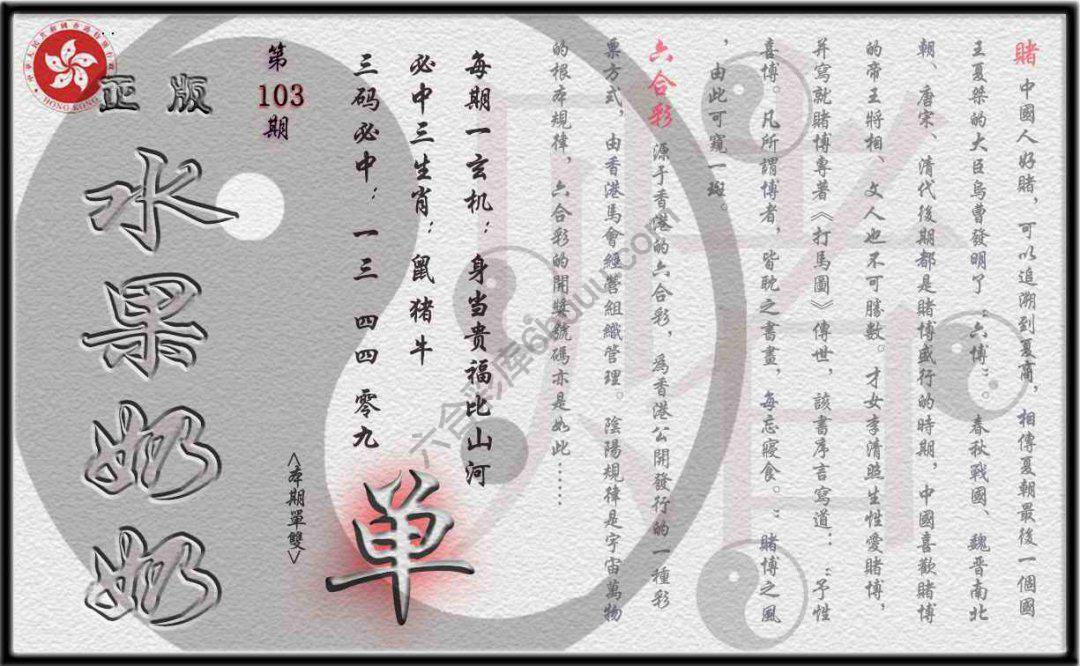 賭 中國人好賭，可以追溯到夏商，相傳夏朝最後一個國
王夏桀的大臣烏曹發明了：六博：。春秋戰國、魏晋南北
朝、唐宋、清代後期都是賭博盛行的時期，中國喜歡賭博
的帝王將相、文人也不可勝數。才女李清照生性愛賭博，
并寫就賭博專著《打馬圖》傳世，該書序言寫道：：予性
喜博。凡所謂博者，皆耽之書畫，每忘寢食。：賭博之風
，由此可窺一斑。
六合彩 源于香港的六合彩，為香港公開發行的一種彩
票方式，由香港馬會經營組織管理。陰陽規律是宇宙萬物
的根本規律，六合彩的開獎號碼亦是如此……
每期一玄机：身当贵福比山河
必中三生肖：鼠猪牛
三码必中：一三 四四 零九
单
<本期單雙>
第
103
期
正版
水果奶奶
HONG KONG
六合彩库6huuu.com